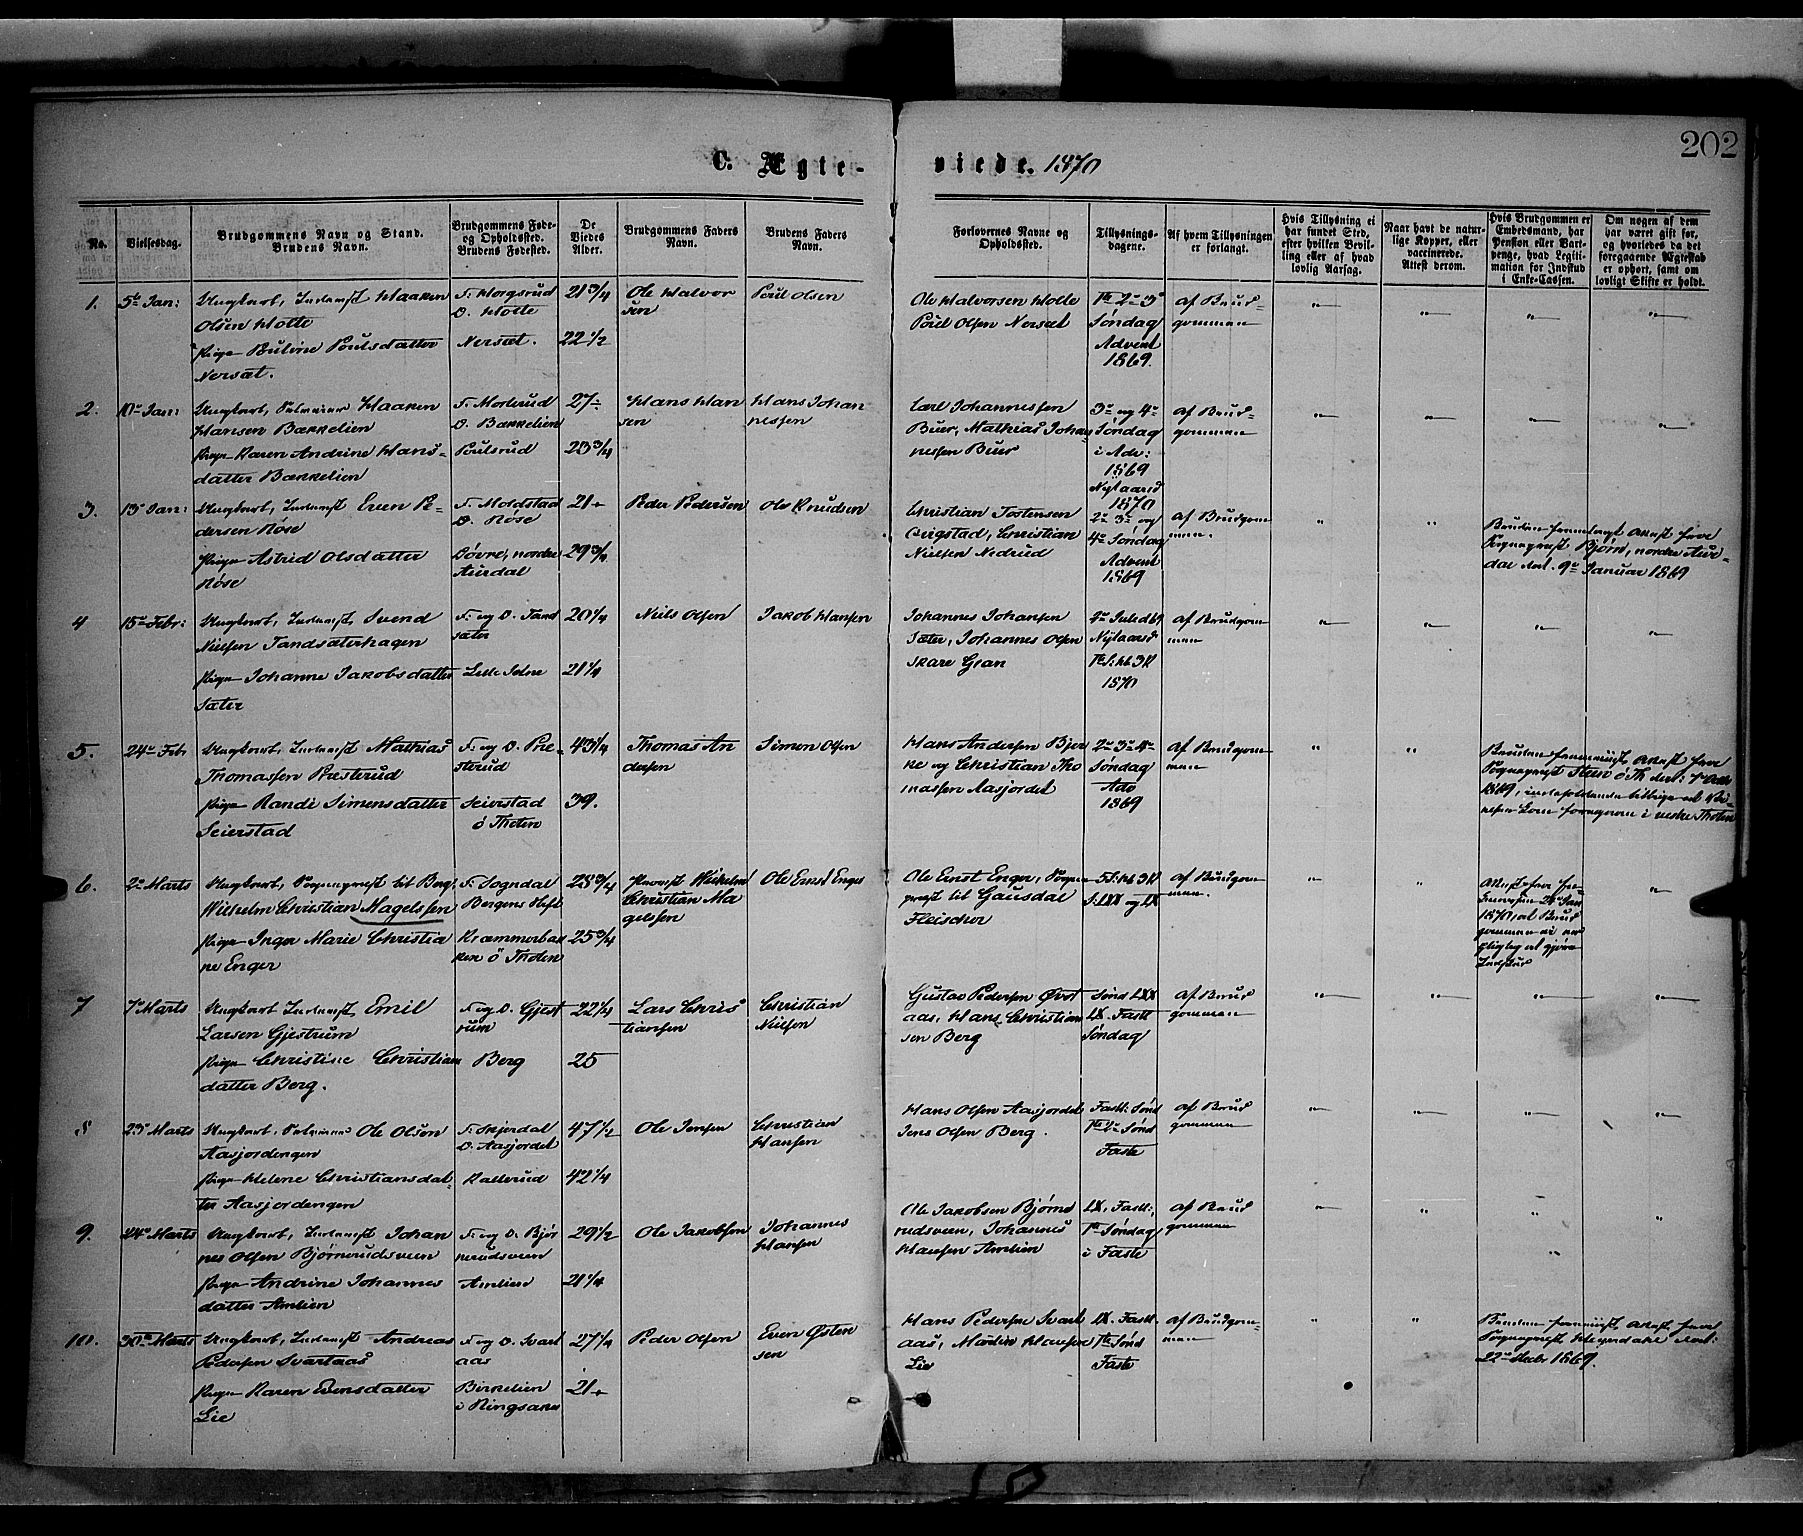 202
C. Ægte- viede. 1870
No.
Vielsesdag.
Brudgommens Navn og Stand.
Brudens Navn.
Brudgommens Føde-
og Opholdssted.
Brudens Fødested.
De
Viedes
Alder.
Brudgommens Faders
Navn.
Brudens Faders
Navn.
Forlovernes Navne og
Opholdssted.
Tillysnings-
dagene.
Af hvem Tillysningen
er forlangt.
Hvis Tillysning ei
har fundet Sted,
efter hvilken Bevil-
ling eller af hvad
lovlig Aarsag.
Naar havt de natur-
lige Kopper, eller
vaccinerede.
Attest derom.
Hvis Brudgommen er
Embedsmand, har
Pension eller Vart-
penge, hvad Legiti-
mation for Indskud
i Enke-Cassen.
Om nogen af dem
har været gift før,
og hvorledes da det
foregaaende Ægteskab
er ophørt, samt om
lovligt Skifte er holdt.
1. 5te Jan: Ungkarl, Inderst Haaken
Olsen Holte
Pige Bulvine Poulsdatter
Nersæt.
F: Horgsrud
O. Holte
Nersæt.
21 3/4
22 1/2
Ole Halvor
sen
Poul Olsen
Ole Halvorsen Holte
Poul Olsen Nersæt
1ste 2den 3die
Søndag
Advent
1869.
af Brud-
gommen
2. 10de Jan: Ungkarl, Haaken
Hansen Bækkelien
Pige Karen Andrine Hans-
datter Bækkelien
F: Morterud
O. Bækkelien
Poulsrud
27
23 3/4
Hans Han
sen
Hans Johan
nessen
Carl Johannessen
Buer, Mathias Johan
nessen Buer
3die og 4de
Søndag
i Adv:
1869
Nytaarsd
1870
af Brud-
gommen
3. 13de Jan: Ungkarl, Inderst Even Pe-
dersen Røse
Pige Astrid Olsdatter
Røse
F: Moldstad
O. Røse
Bøvre, nordre
Aurdal
21
29 3/4
Peder Pedersen
Ole Knudsen
Christian Tostensen
Christian
Nielsen Nedrud
2den 3die og
4de Søndag
Advent
1869
af Brudgom
men.
Bruden fremlagt Attest fra
Sogneprest Bjørn, nordre Aur-
dal dat. 9de Januar 1869
4 15de Febr: Ungkarl, Inderst Svend
Nielsen Tandsæterhagen
Pige Johanne Jakobsdatter
Sæter
F: og O. Tand
sæter
Lille Selne
20 1/4
21 1/4
Niels Olsen
Jakob Hansen
Johannes Johansen
Sæter, Johannes Olsen
Skare Gran
2den Juled 69
Nytaarsd
1ste S: H 3 K
1870
af Brudgom
men
5. 24de Febr Ungkarl, Inderst Mathias
Thomassen Presterud
Pige Randi Simensdatter
Seierstad
F: og O. Pre-
sterud
Seierstad
ø Thoten
43 1/4
39.
Thomas An
dersen
Simen Olsen
Hans Andersen Bjer
ke og Christian Tho
massen Aasjordet
2den 3die 4de
Søndag
Adv
1869
af Brudgom
men
Bruden fremviist Attest fra
Sogneprest Steen ø Th
1869, indeholdende tillige at
foregaar i vestre Thoten
6. 2den Marts Ungkarl, Sogneprest til Berg,
Wilhelm Christian Magelssen
Pige Inger Marie Christia
ne Enger
F: Sogndal
Bergens Stift
Kræmmerbak
ken ø Thoten
28 3/4
25 3/4
Provst Wilhelm
Christian Ma
gelssen
Ole Ernst Enger
Ole Ernst Enger, Sogne
prest til Gausdal
Fleischer
5 S: H 3 K
S: LXX og LX
af Brudgom
men.
Attest fra
1870, at Brud
gommen ei er
pligtig at gjøre
Indskud
7 7de Marts Ungkarl Inderst Emil
Larsen Gjestrum
Pige Christine Christian
datter Berg.
F: og O. Gjest
rum
Berg
22 1/4
25
Lars Chris
tiansen
Christian
Nielsen
Gustav Pedersen Øvst
aas, Hans Christian
sen Berg
Sønd LXX
LX. Fastl
Søndag
af Brud
gommen
8 23de Marts Ungkarl, Ole Olsen
Aasjordengen
Pige Helene Christiansdat-
ter Aasjordengen
F: Skjerdal
O. Aasjordet
Kallerud
47 1/2
42 1/4
Ole Jensen
Christian
Hansen
Hans Olsen Aasjordet
Jens Olsen Berg.
Fastl: Sønd
1ste 2den Sønd
Faste
af Brud
gommen
9. 24de Marts Ungkarl, Inderst Johan
nes Olsen Bjørnerudsveen
Pige Andrine Johannes
datter Amlien
F: og O. Bjør
nerudsveen
Amlien
29 1/2
21 1/4
Ole Jakobsen
Johannes
Hansen
Ole Jakobsen Bjørne
rudsveen, Johannes
Hansen Amlien
LX. Fastl:,
1ste Søndag
i Faste
af Brud
gommen
10. 30te Marts Ungkarl, Inderst Andreas
Pedersen Svartaas
Pige Karen Evensdatter
Lie
F: og O. Svart
aas
Birkelien
i Ringsaker
27 1/4
21
Peder Olsen
Even Østen
sen
Hans Pedersen Svart
aas, Martin Hansen
Lie
LX. Fastl.
1ste Sønd
Faste
af Brudgom-
men
Bruden fremviist Attest fra
Sogneprest Heyerdahl dat:
22de Decbr 1869.